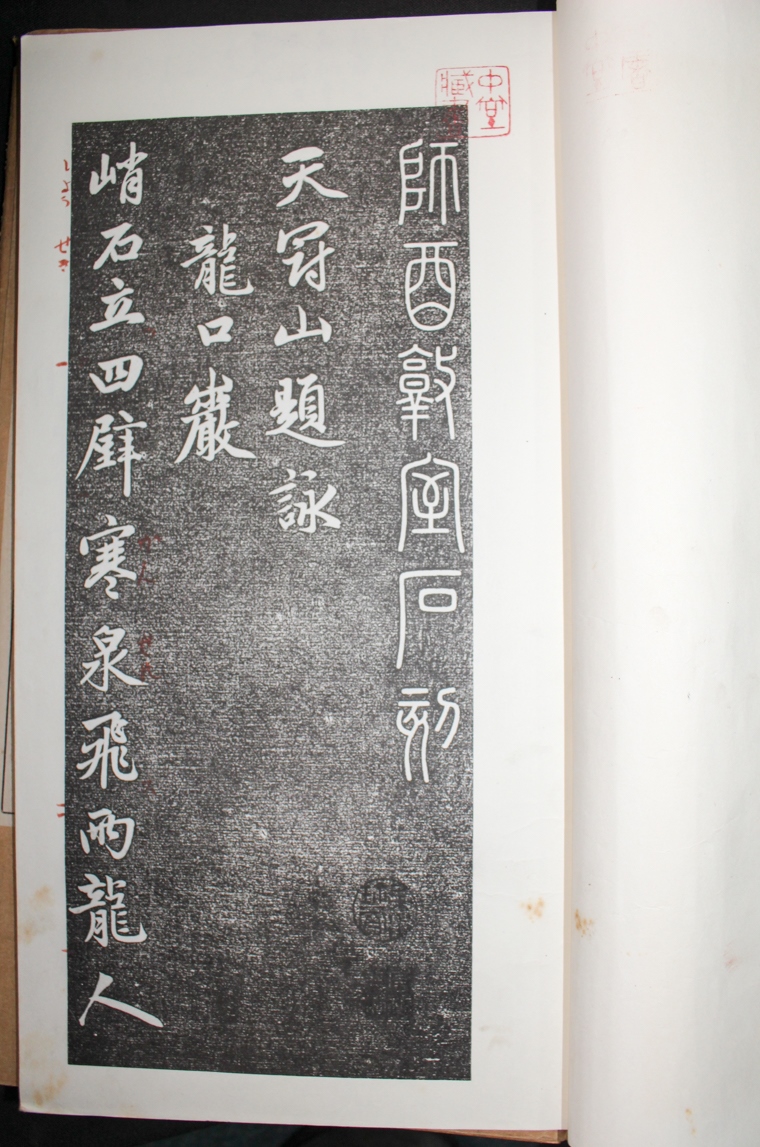 中堂
臧書
師酉敦室石刻
天冠山題詠
龍口巖
峭石立四壁寒泉飛兩龍人
しょう
せき
一
かん
せん
二